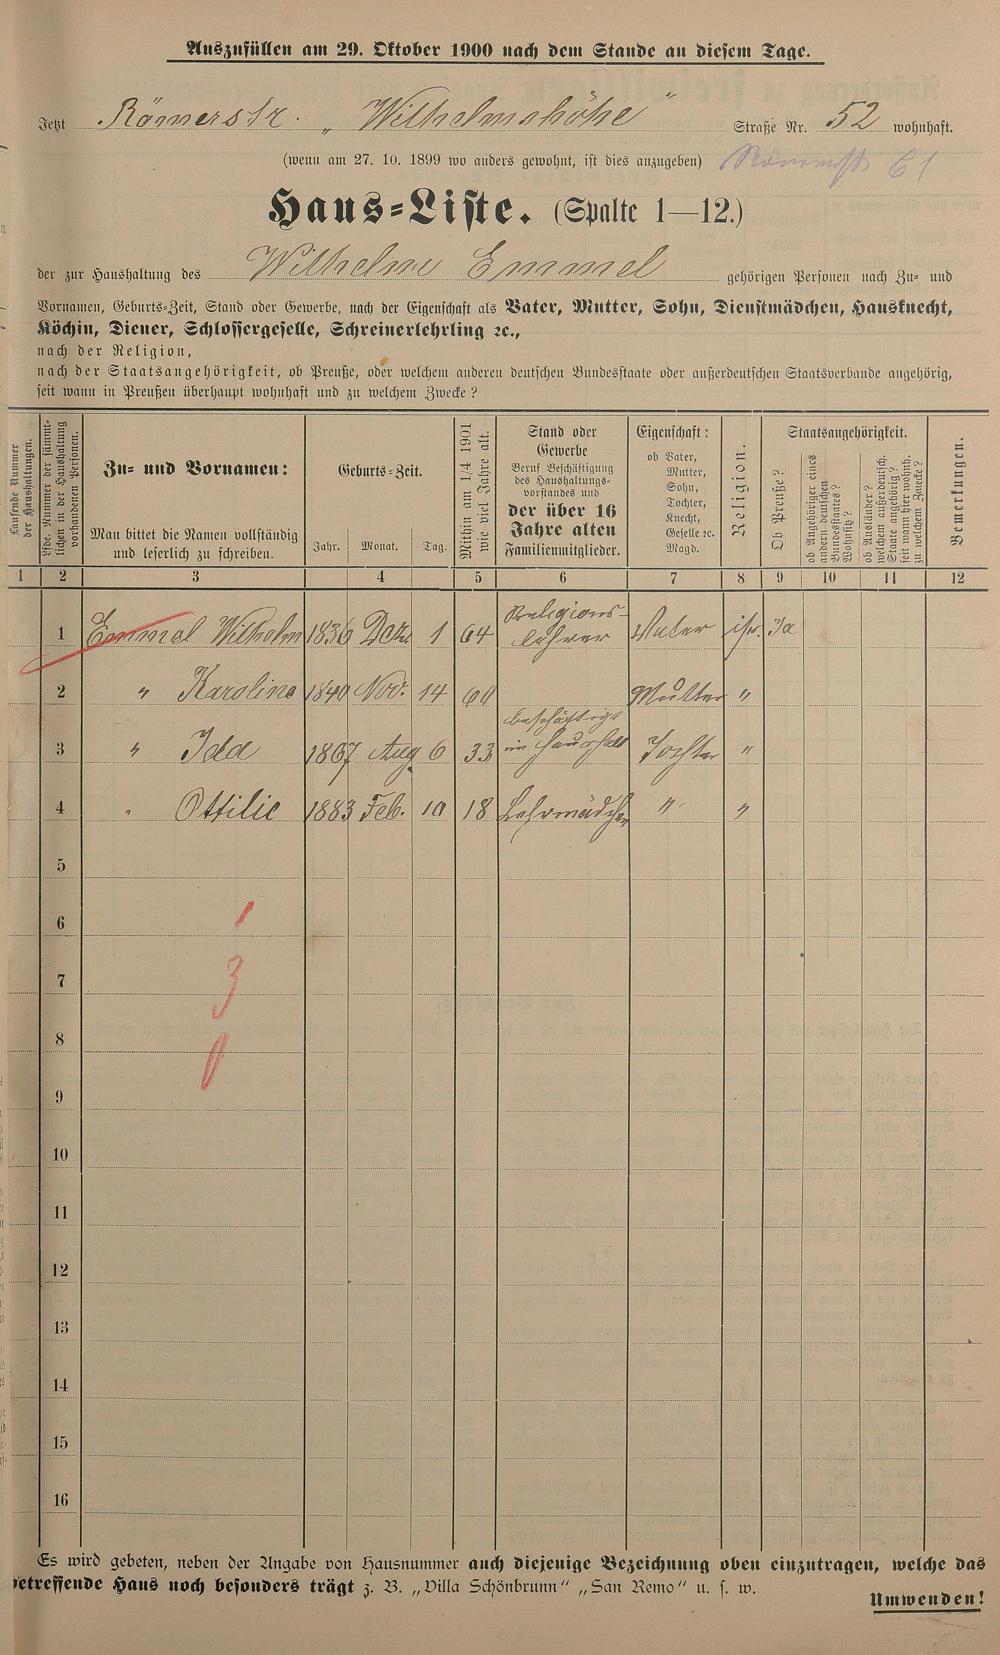 Auszufüllen am 29. Oktober 1900 nach dem Stande an diesem Tage.
Jetzt Römerstr. „Wilhelmshöhe“ Straße Nr. 52 wohnhaft.
(wenn am 27. 10. 1899 wo anders gewohnt, ist dies anzugeben) Römerstr 61
Haus-Liste. (Spalte 1—12.)
der zur Haushaltung des Wilhelm Emmel gehörigen Personen nach Zu- und
Vornamen, Geburts-Zeit, Stand oder Gewerbe, nach der Eigenschaft als Vater, Mutter, Sohn, Dienstmädchen, Hausknecht,
Köchin, Diener, Schlossergeselle, Schreinerlehrling ꝛc.,
nach der Religion,
nach der Staatsangehörigkeit, ob Preuße, oder welchem anderen deutschen Bundesstaate oder außerdeutschen Staatsverbande angehörig,
seit wann in Preußen überhaupt wohnhaft und zu welchem Zwecke?
Laufende Nummer
der Haushaltungen.
Lfde. Nummer der sämmt-
lichen in der Haushaltung
vorhandenen Personen.
Zu- und Vornamen:
Man bittet die Namen vollständig
und leserlich zu schreiben.
Geburts-Zeit.
Jahr. Monat. Tag.
Mithin am 1/4 1901
wie viel Jahre alt.
Stand oder
Gewerbe
Beruf Beschäftigung
des Haushaltungs-
vorstandes und
der über 16
Jahre alten
Familienmitglieder.
Eigenschaft:
ob Vater,
Mutter,
Sohn,
Tochter,
Knecht,
Geselle ꝛc.
Magd.
Religion.
Staatsangehörigkeit.
Ob Preuße?
ob Angehöriger eines
andern deutschen
Bundesstaates?
Wohnsitz?
ob Ausländer?
welchem außerdeutsch.
Staate angehörig?
seit wann hier wohnh.
zu welchem Zwecke?
Bemerkungen.
1 2 3 4 5 6 7 8 9 10 11 12
1 Emmel Wilhelm 1836 Dez. 1 64 Religions-
lehrer Vater isr. Ja
2 " Karoline 1840 Nov. 14 60 Mutter "
3 " Ida 1867 Aug 6 33 beschäftigt
im Haushalt Tochter "
4 " Ottilie 1883 Feb. 10 18 Lehrmädchen " "
5
6 1
7 3
8 0
9
10
11
12
13
14
15
16
Es wird gebeten, neben der Angabe von Hausnummer auch diejenige Bezeichnung oben einzutragen, welche das
betreffende Haus noch besonders trägt z. B. „Villa Schönbrunn“ „San Remo“ u. s. w.
Umwenden!